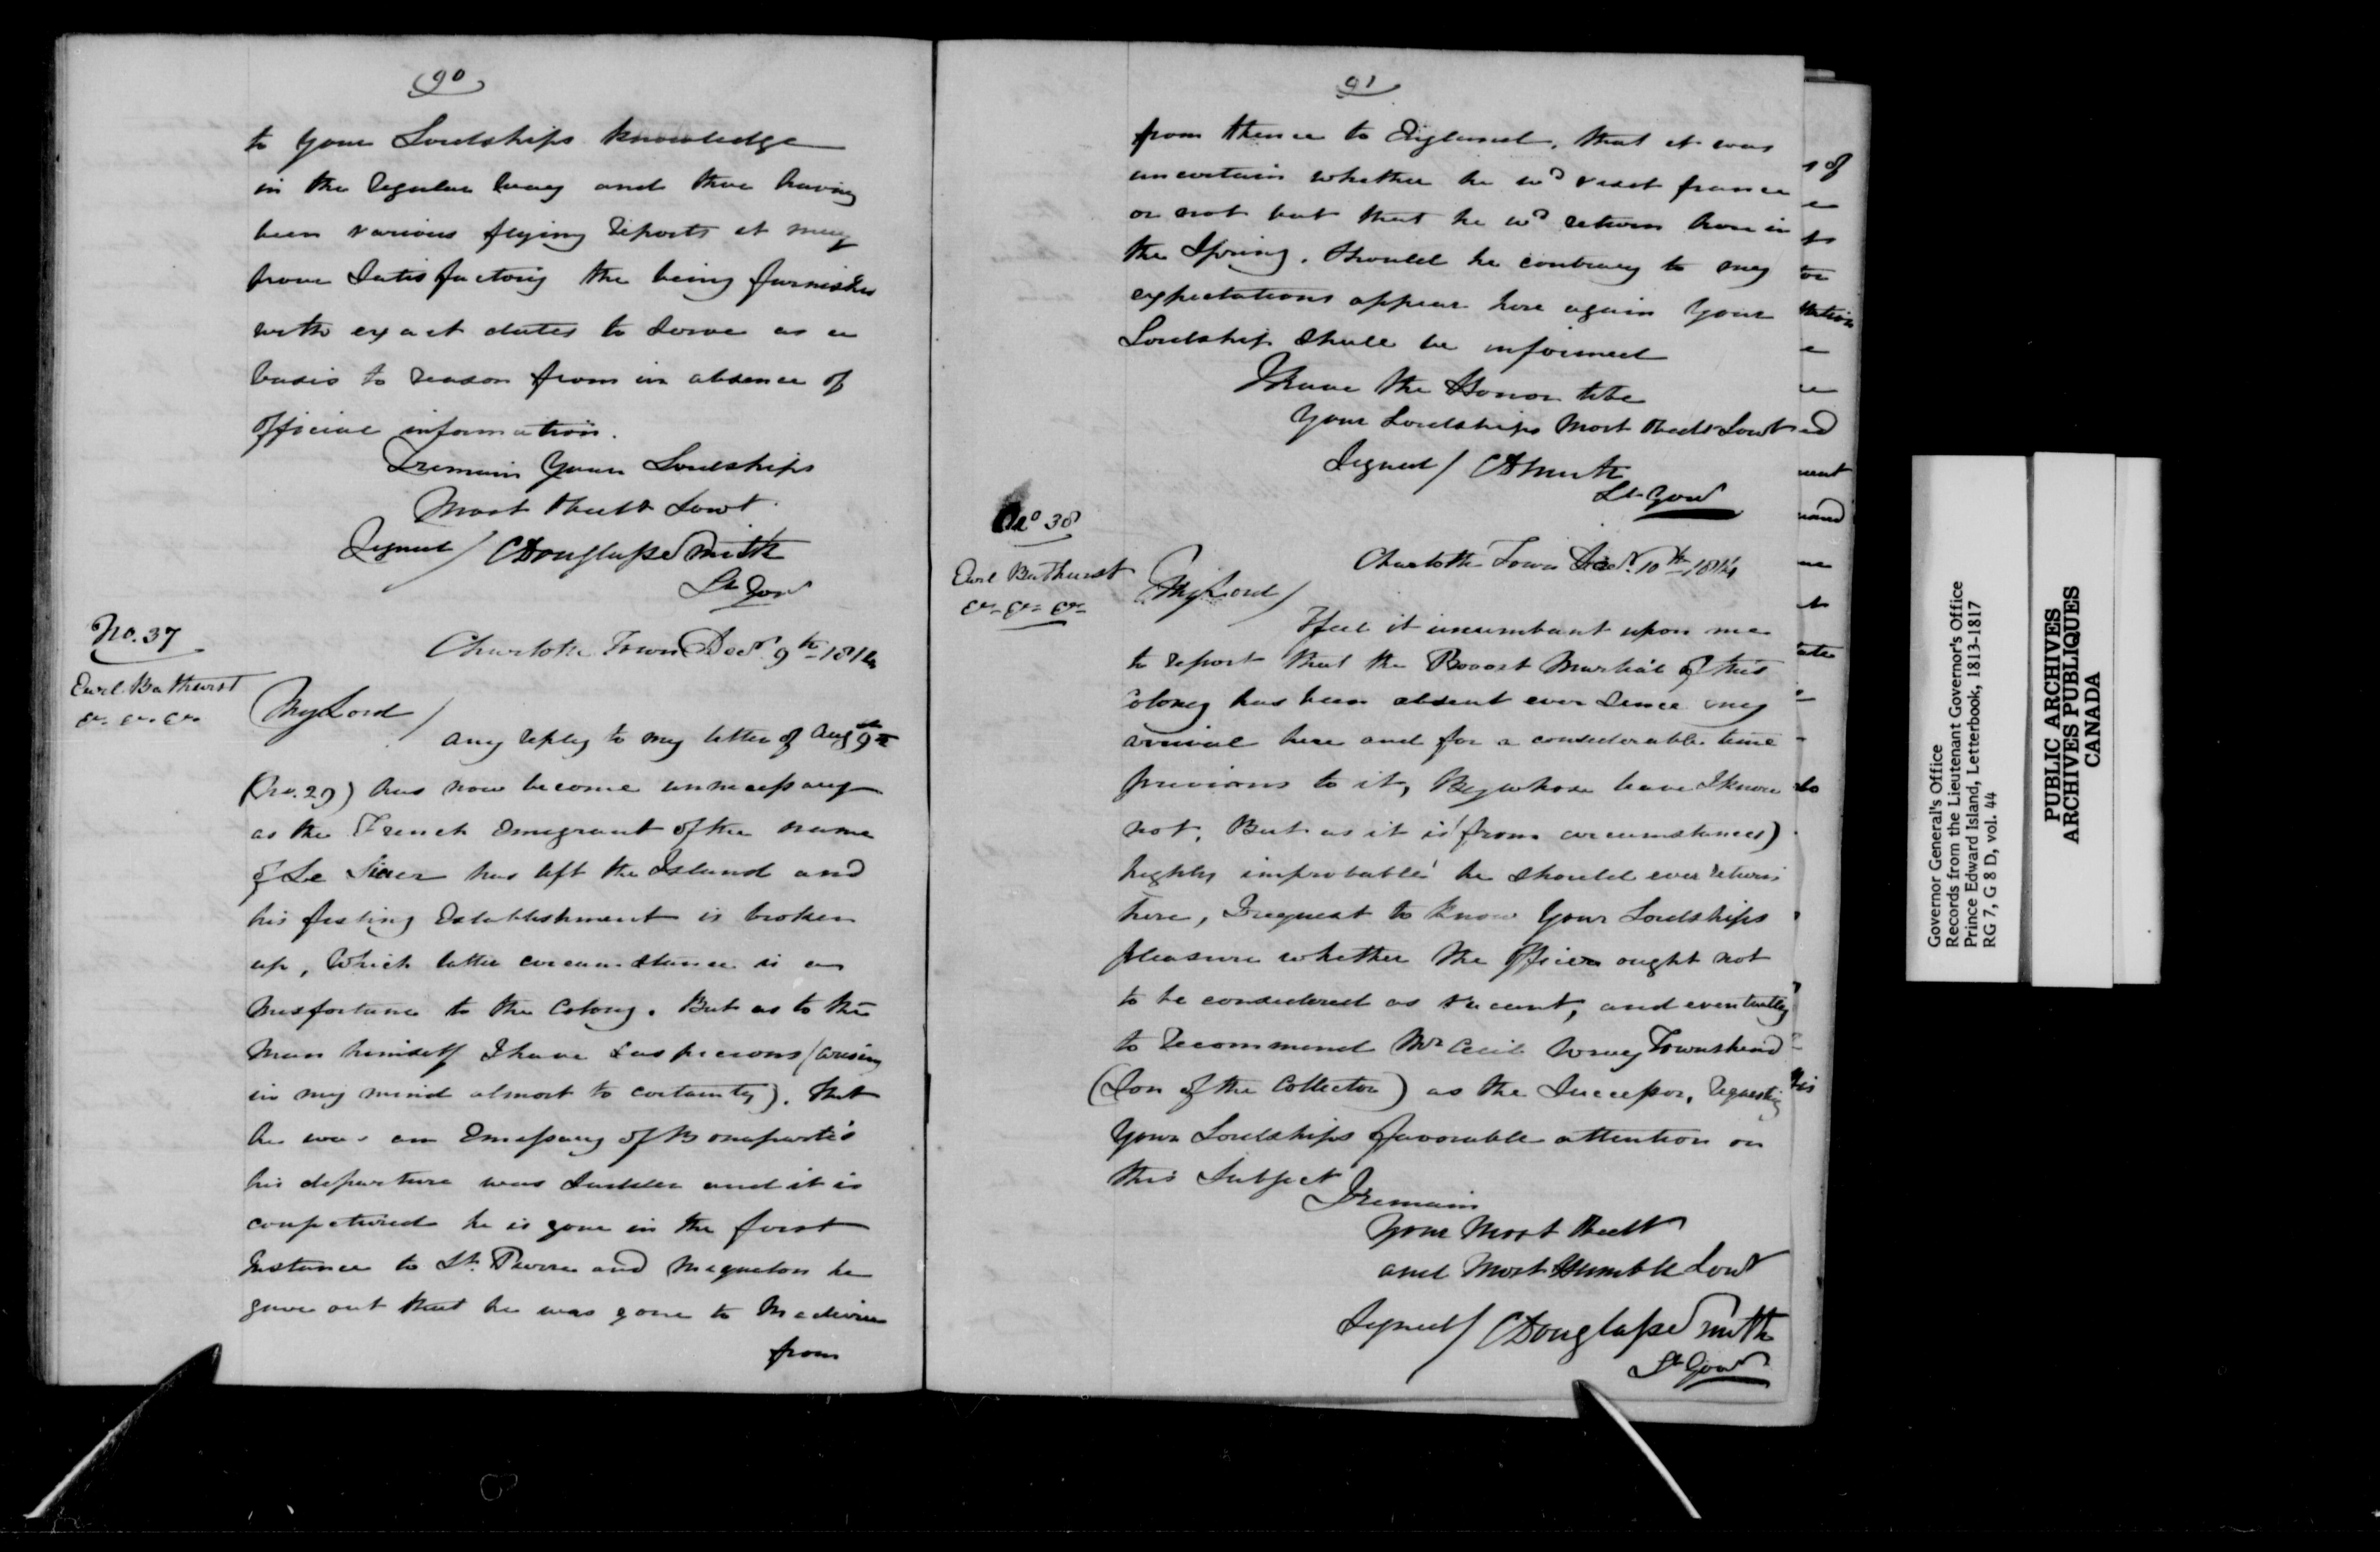 90
to your Lordships knowledge
in the regular way and there having
been various flying reports it may
prove Satisfactory the being furnished
with exact dates to serve as a
basis to reason from in absence of
official information.
I remain Your Lordships
Most Obedt Servt
Signed / C Douglass Smith
Lt Govr
No. 37
Charlotte Town Decr. 9th 1814
Earl Bathurst
&c. &c. &c.
My Lord /
any reply to my letter of Augst 9th
(No. 29) has now become unnecessary
as the French Emigrant of the name
of Le has left the Island and
his fishing Establishment is broken
up, Which latter circumstance is a
misfortune to the Colony. But as to the
Man himself I have Suspicions (arising
in my mind almost to certainty). that
he was an Emissary of Bonaparte's
his departure was Sudden and it is
conjectured he is gone in the first
Instance to St. Pierre and Miquelon he
gave out that he was gone to Madeira
from
91
from thence to England, that it was
uncertain whether he wd visit france
or not but that he wd return here in
the Spring. Should he contrary to my
expectations appear here again Your
Lordship shall be informed
I have the Honor to be
Your Lordships Most Obedt Servt
Signed / CD Smith
Lt Govr
No 38
Charlotte Town Decr. 10th 1814
Earl Bathurst
&c. &c. &c.
My Lord /
I feel it incumbant upon me
to report that the Provost Marshal of this
Colony has been absent ever Since my
arrival here and for a considerable time
previous to it, By whose leave I know
not, But as it is (from circumstances)
highly improbable he should ever return
here, I request to know Your Lordships
pleasure whether the Office ought not
to be considered as vacant, and eventually
to recommend Mr Cecil Wray Townshend
(Son of the Collector) as the Successor, requesting
Your Lordships favorable attention on
this Subject
I remain
Your Most Obedt
and Most Humble Servt
Signed / C Douglass Smith
Lt Govr
Governor General's Office
Records from the Lieutenant Governor's Office
Prince Edward Island, Letterbook, 1813-1817
RG 7, G 8 D, vol. 44
PUBLIC ARCHIVES
ARCHIVES PUBLIQUES
CANADA